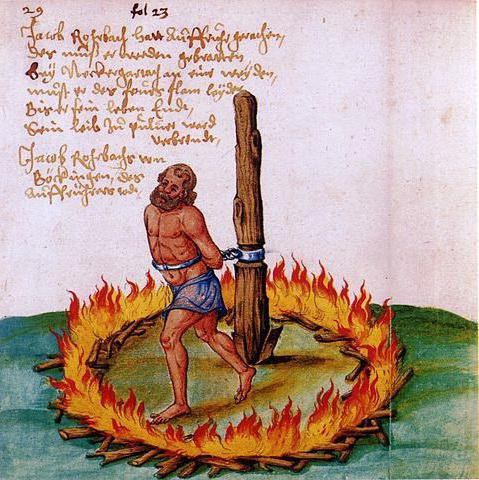 29 fol 23
Jacob Rohrbach hatt Auffruhr gerachen,
der must er werden gebratten,
Bay Neckergartach an eine weyden,
must er des feurs flam leyden
Bis er sein leben Endt,
Sein leib zu puluer ward
verbrendt,
Jacob Rohrbachs von
Böckingen, des
Auffrührers tod.